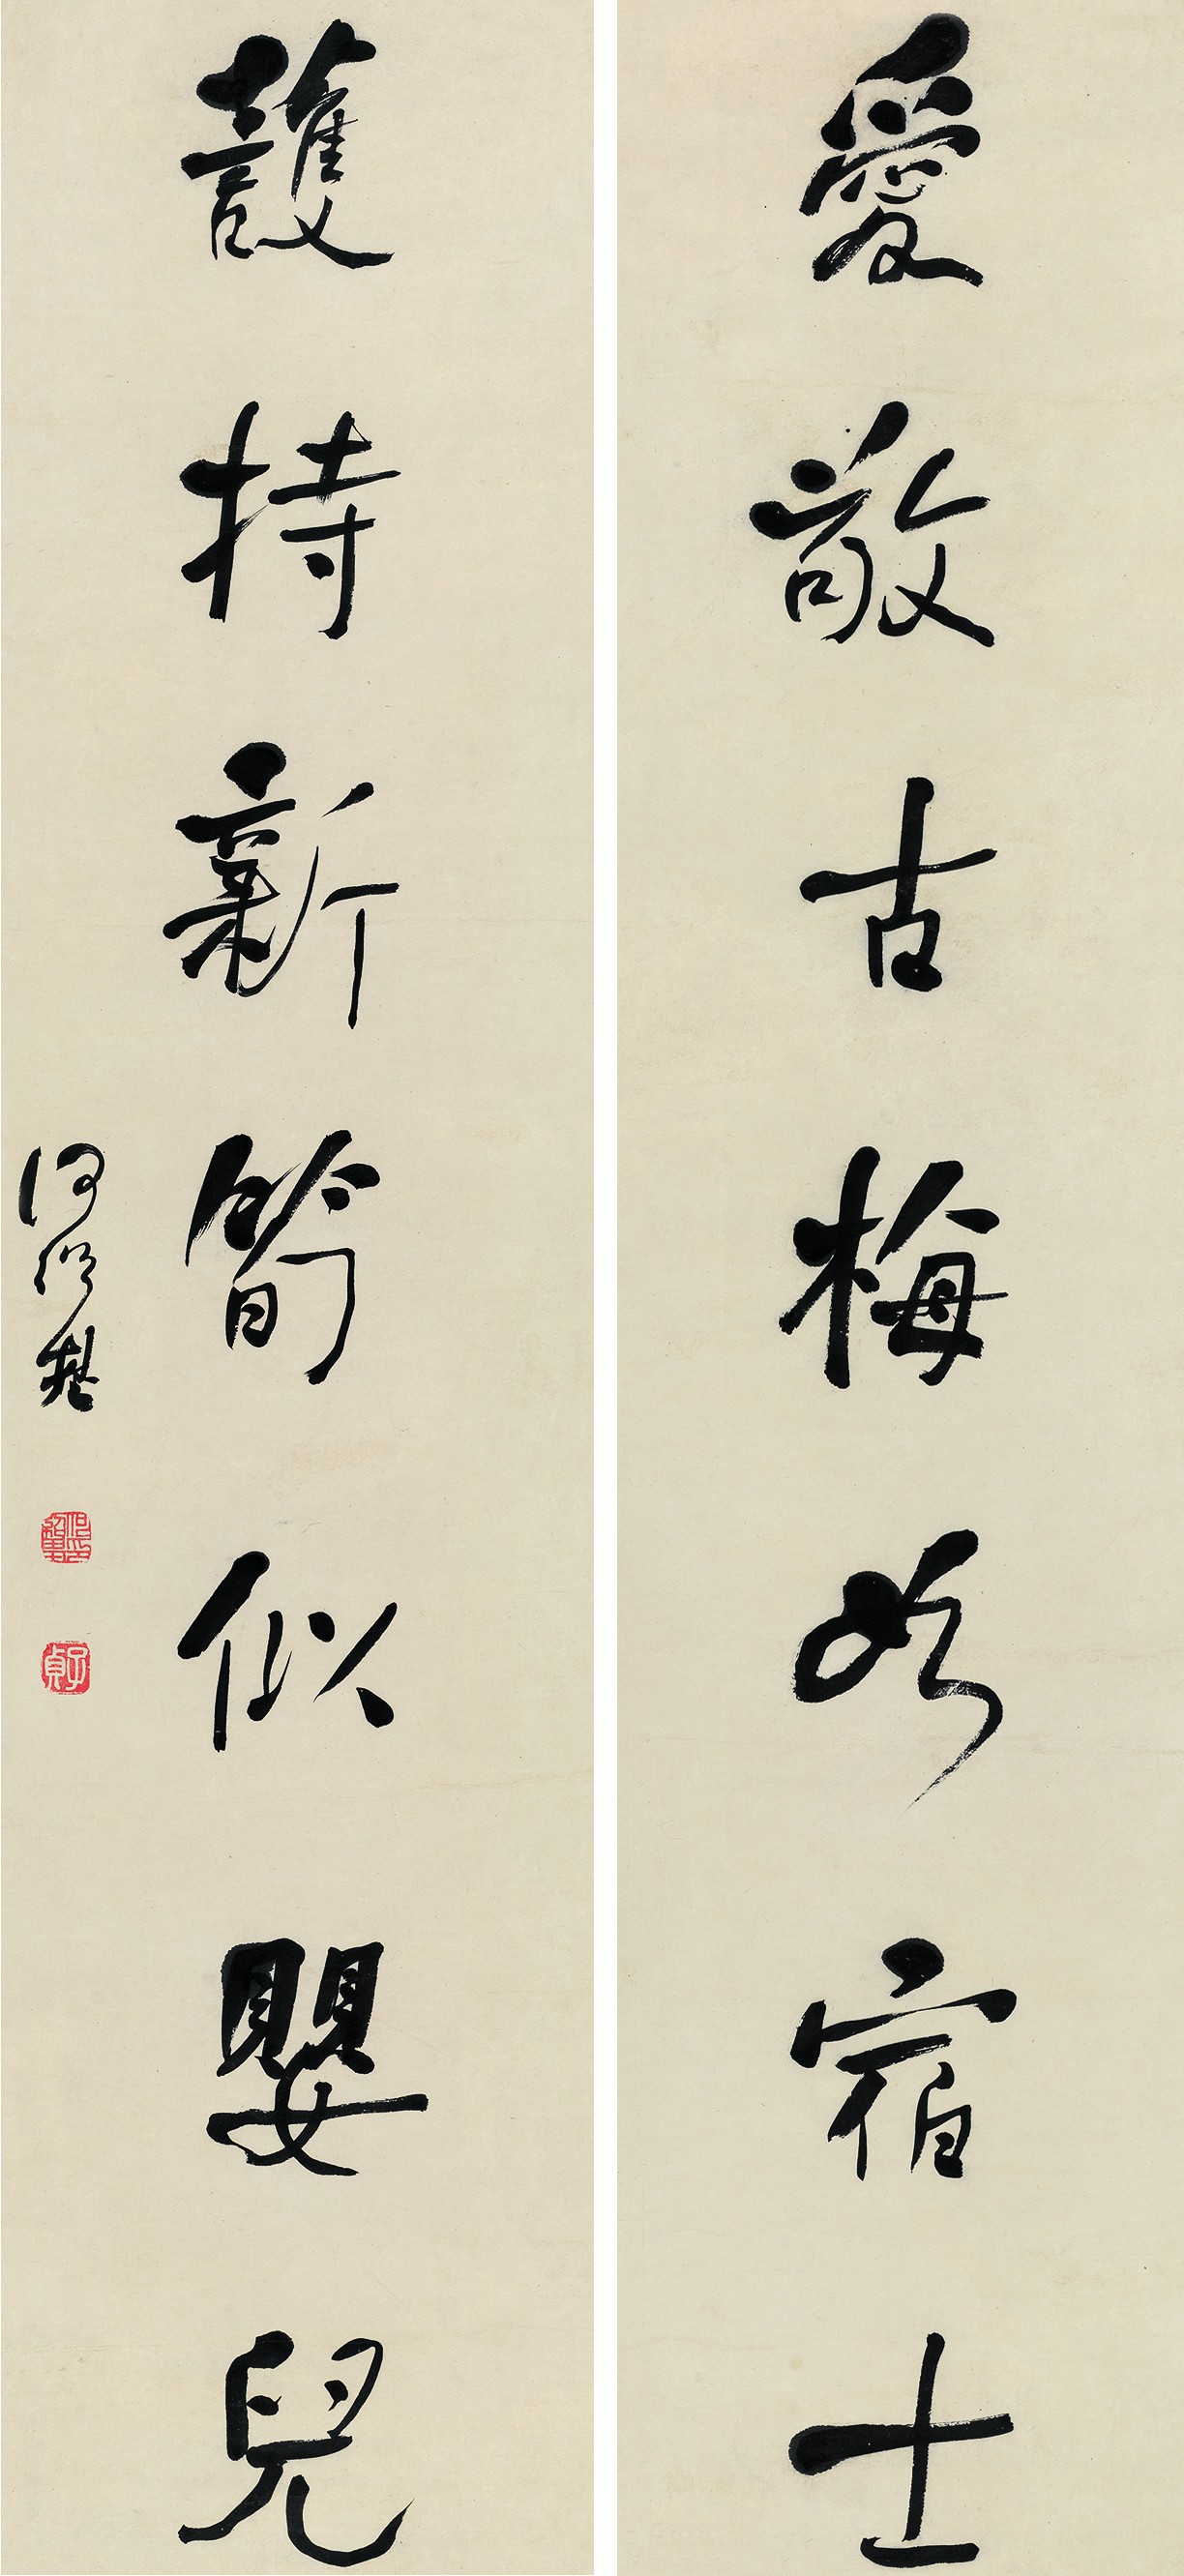 愛敬古梅如宿士
護持新筍似嬰兒
何紹基
子貞